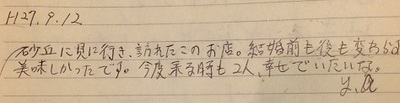 H27.9.12
砂丘に見に行き、訪れたこのお店。結婚前も後も変わらず
美味しかったです。今度来る時も2人、幸せでいたいな。
y.a